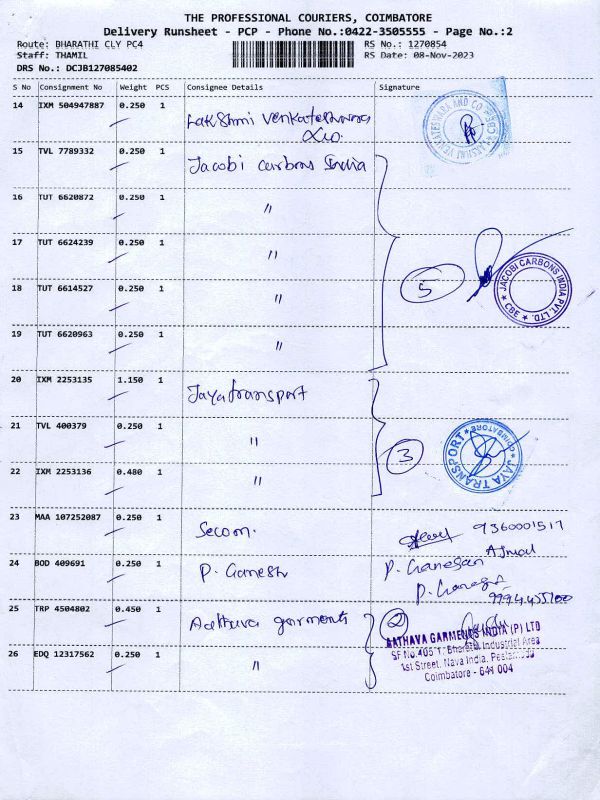 THE PROFESSIONAL COURIERS, COIMBATORE
Delivery Runsheet - PCP - Phone No.:0422-3505555 - Page No.:2
Route: BHARATHI CLY PC4 RS No.: 1270854
Staff: THAMIL RS Date: 08-Nov-2023
DRS No.: DCJB127085402
S No Consignment No Weight PCS Consignee Details Signature
14 IXM 504947887 0.250 1 Lakshmi Venkateshwara
& co.
LAKSHMI VENKATESWARA AND CO CBE
15 TVL 7789332 0.250 1 Jacobi carbons India
16 TUT 6620872 0.250 1 "
17 TUT 6624239 0.250 1 "
18 TUT 6614527 0.250 1 "
5
JACOBI CARBONS INDIA PVT. LTD. ★ CBE ★
19 TUT 6620963 0.250 1 "
20 IXM 2253135 1.150 1 Jayatransport
21 TVL 400379 0.250 1 "
3
★ JAYA TRANSPORT ★ COIMBATORE
22 IXM 2253136 0.480 1 "
23 MAA 107252087 0.250 1 Secom. 9360001517
Ajmal
24 BOD 409691 0.250 1 P. Ganesh P. Ganesan
25 TRP 4504802 0.450 1 Aathava garments 2
AATHAVA GARMENTS INDIA (P) LTD
SF No.405/1, Bharathi Industrial Area
1st Street, Nava India, Peelamedu
Coimbatore - 641 004
26 EDQ 12317562 0.250 1 "